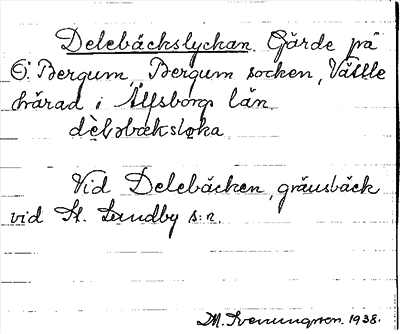 Delebäckslyckan. Gärde på
Ö. Bergum, Bergum socken, Vättle
härad i Älfsborgs län.
dèləbəkslɷka
Vid Delebäcken, gränsbäck
vid St. Lundby s:n.
M. Svenungsson. 1938.